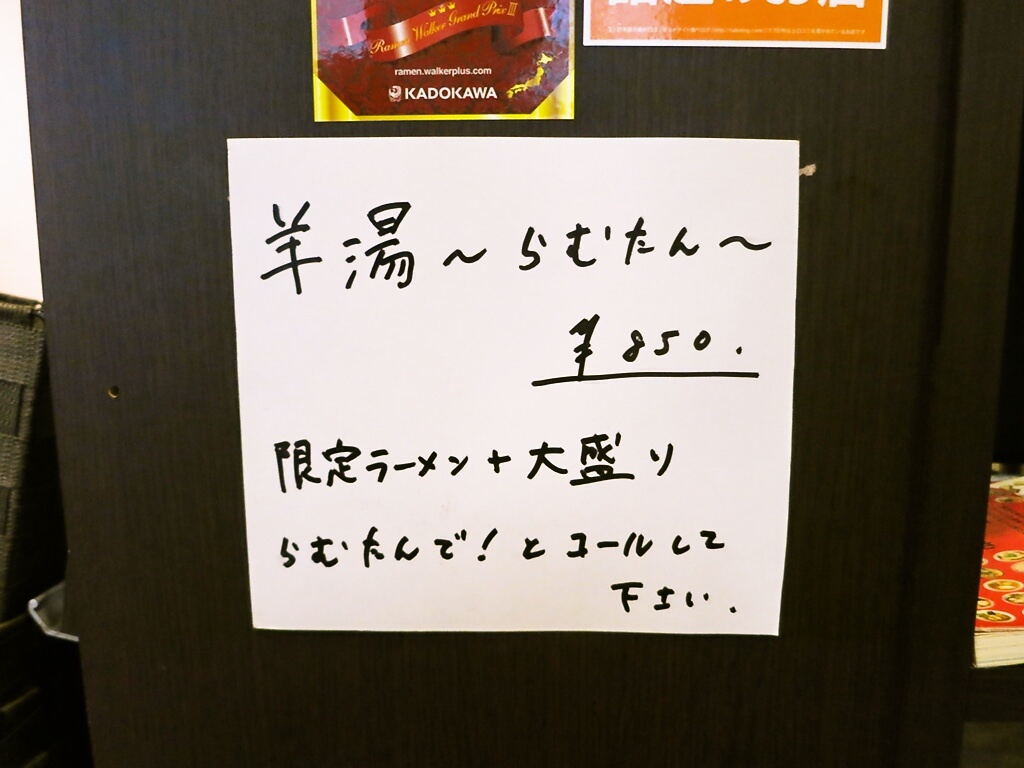 Ramen Walker Grand Prix III
ramen.walkerplus.com
KADOKAWA
羊湯〜らむたん〜
¥850.
限定ラーメン+大盛り
らむたんで!とコールして
下さい.